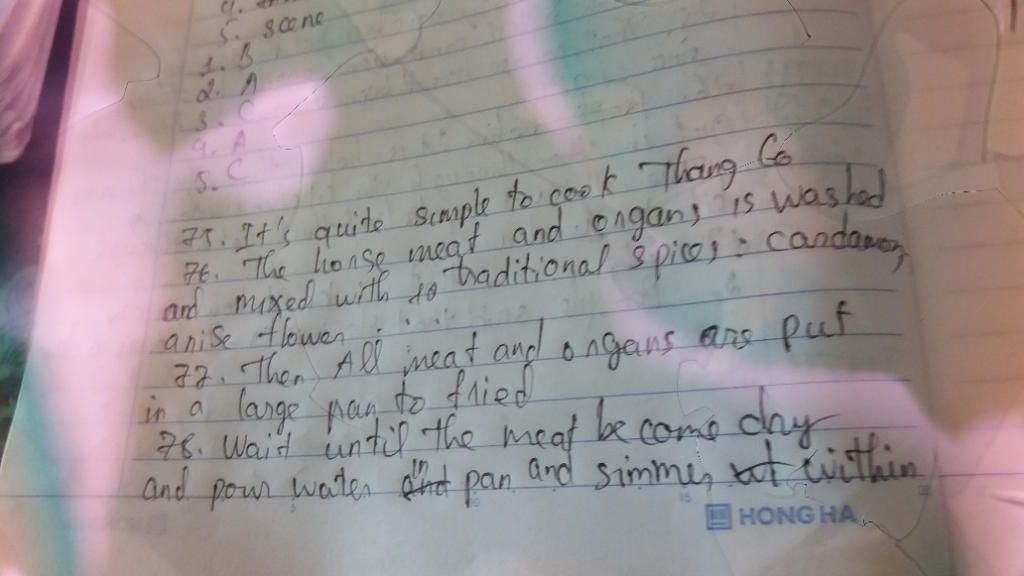 5. scene
1. B
2. A
3. C
4. A
5. C
75. It's quite simple to cook Thang Co
76. The horse meat and organs is washed
and mixed with to traditional spices: candamon,
anise flower.....
77. Then All meat and organs are put
in a large pan to fried
78. Wait until the meat be come dry
and pour water in pan and simmer within
HONG HA